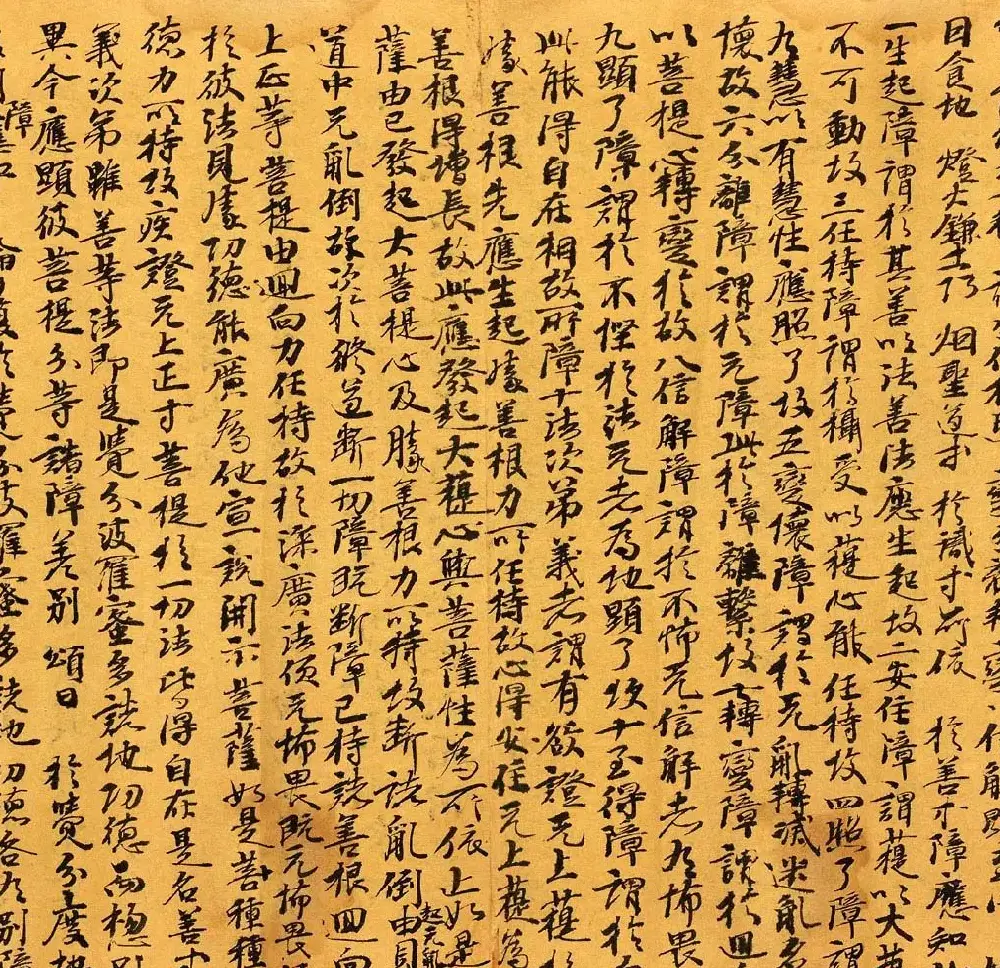 日食地 燈火鎌工巧 烟聖道等 於識等所依 於善等障應知
一生起障謂於其善以法善法應生起故二安住障謂菩提以大菩
不可動故三任持障謂於攝受以菩提心能任持故四照了障謂
有慧以有慧性應照了故五變壞障謂於无亂轉滅迷亂名
壞故六分離障謂於无障此於障離繫故七轉變障謂於迴
以菩提心轉變於故八信解障謂於不怖无信解者有怖畏
九顯了障謂於不慳於法无者為地顯了故十至得障謂於
此能得自在相故所障十法次第義者謂有欲證无上菩提於
勝善根先應生起勝善根力所任持故必得安住无上菩提為
善根得增長故此應發起大菩提心與菩薩性為所依止如是
薩由已發起大菩提心及勝善根力所持故斷諸亂倒起无亂由見
道中无亂倒故次於脩道斷一切障既斷障已持諸善根迴向
上正等菩提由迴向力任持故於深廣法便无怖畏既无怖畏
於彼法見勝功德能廣為他宣說開示菩薩如是菩種種
德力所持故疾證无上正等菩提於一切法皆得自在是名善等
義次第雖善等法即是覺分波羅蜜多諸地功德而總別
異今應顯彼菩提分等諸障差別 頌曰 於覺分至度地
於覺分波羅蜜多諸地功德各有別障